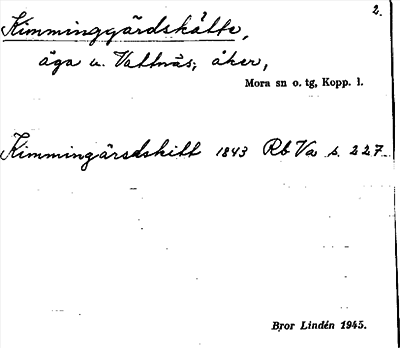 2.
Kimminggärdskåtte,
äga u. Vattnäs; åker,
Mora sn o. tg, Kopp. l.
Kimmingärsdskitt 1843 Rb Va s. 227
Bror Lindén 1945.